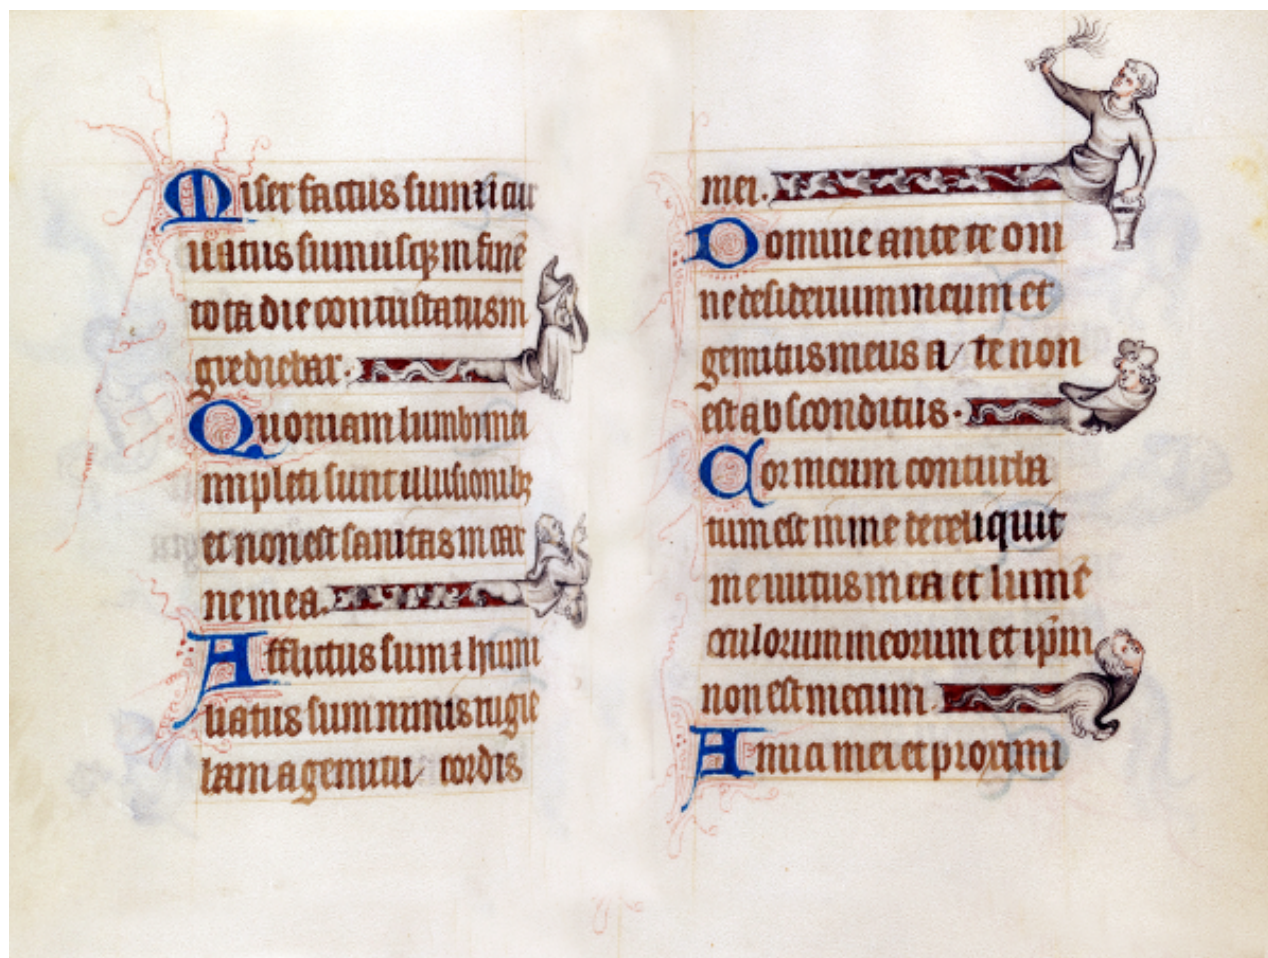 Miser factus sum ⁊ cur
uatus sum usqꝫ in finē
tota die contristatus in
grediebar.
Quoniam lumbi mei
impleti sunt illusionibꝫ
et non est sanitas in car
ne mea.
Afflictus sum ⁊ humi
liatus sum nimis rugie
bam a gemitu cordis
mei.
Domine ante te om
ne desiderium meum et
gemitus meus a te non
est absconditus.
Cor meum conturba
tum est in me dereliquit
me uirtus mea et lumē
oculorum meorum et ip̄m
non est mecum.
Amici mei et proximi